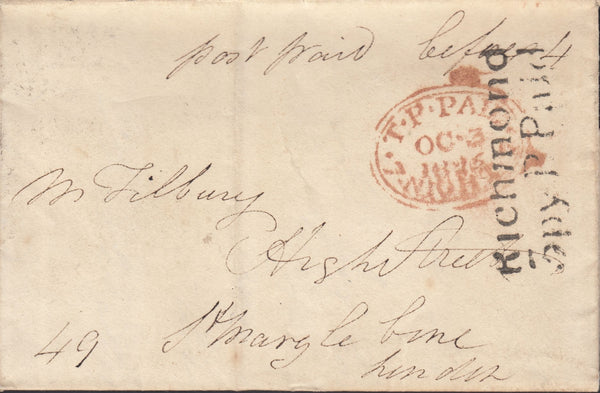 post paid before 4
T.P. PAID
OC·3
NIGHT
Richmond
3py P. Paid
Mr Tilbury
High Street
St Mary le bone
49
London